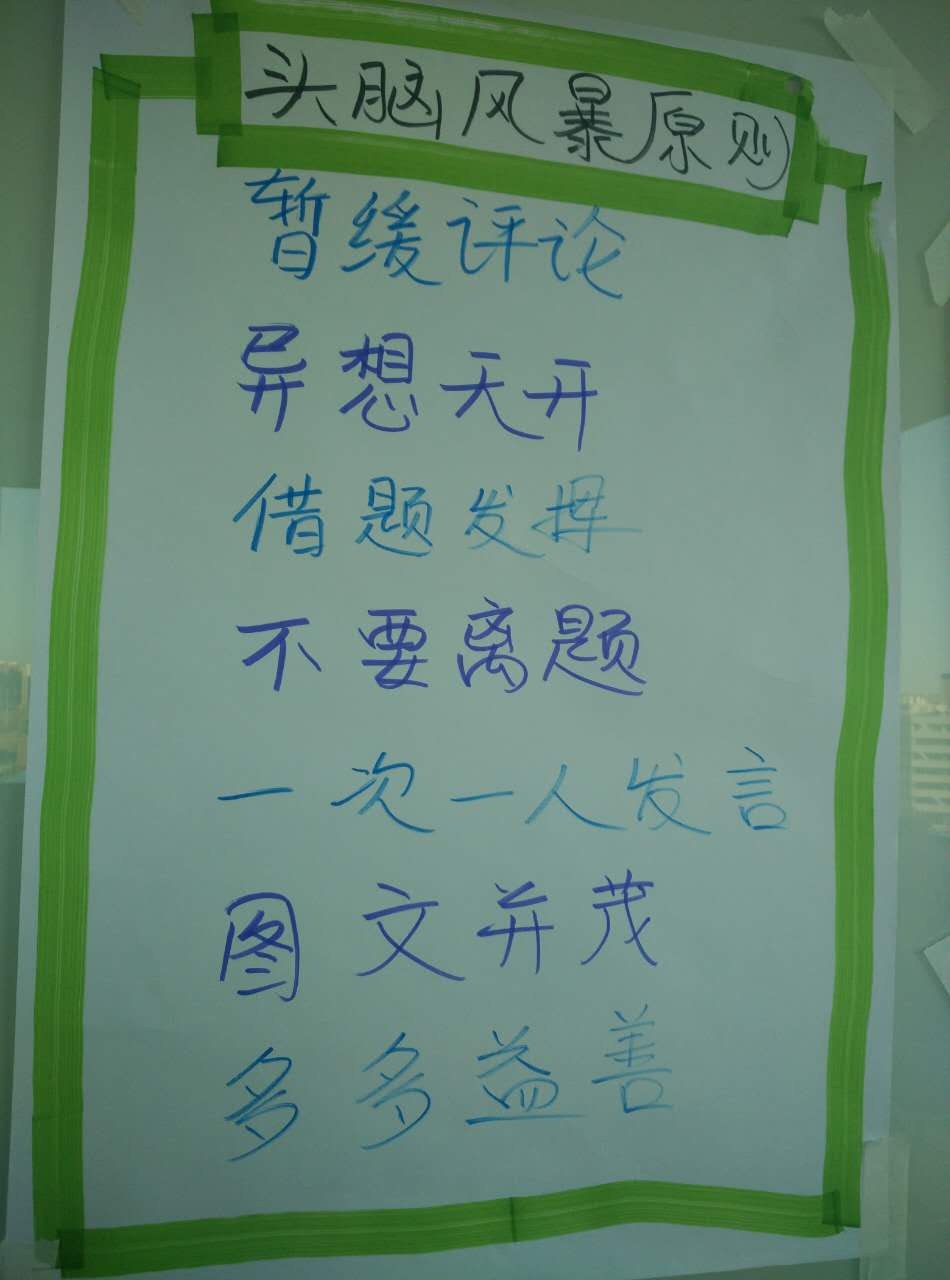 头脑风暴原则
暂缓评论
异想天开
借题发挥
不要离题
一次一人发言
图文并茂
多多益善